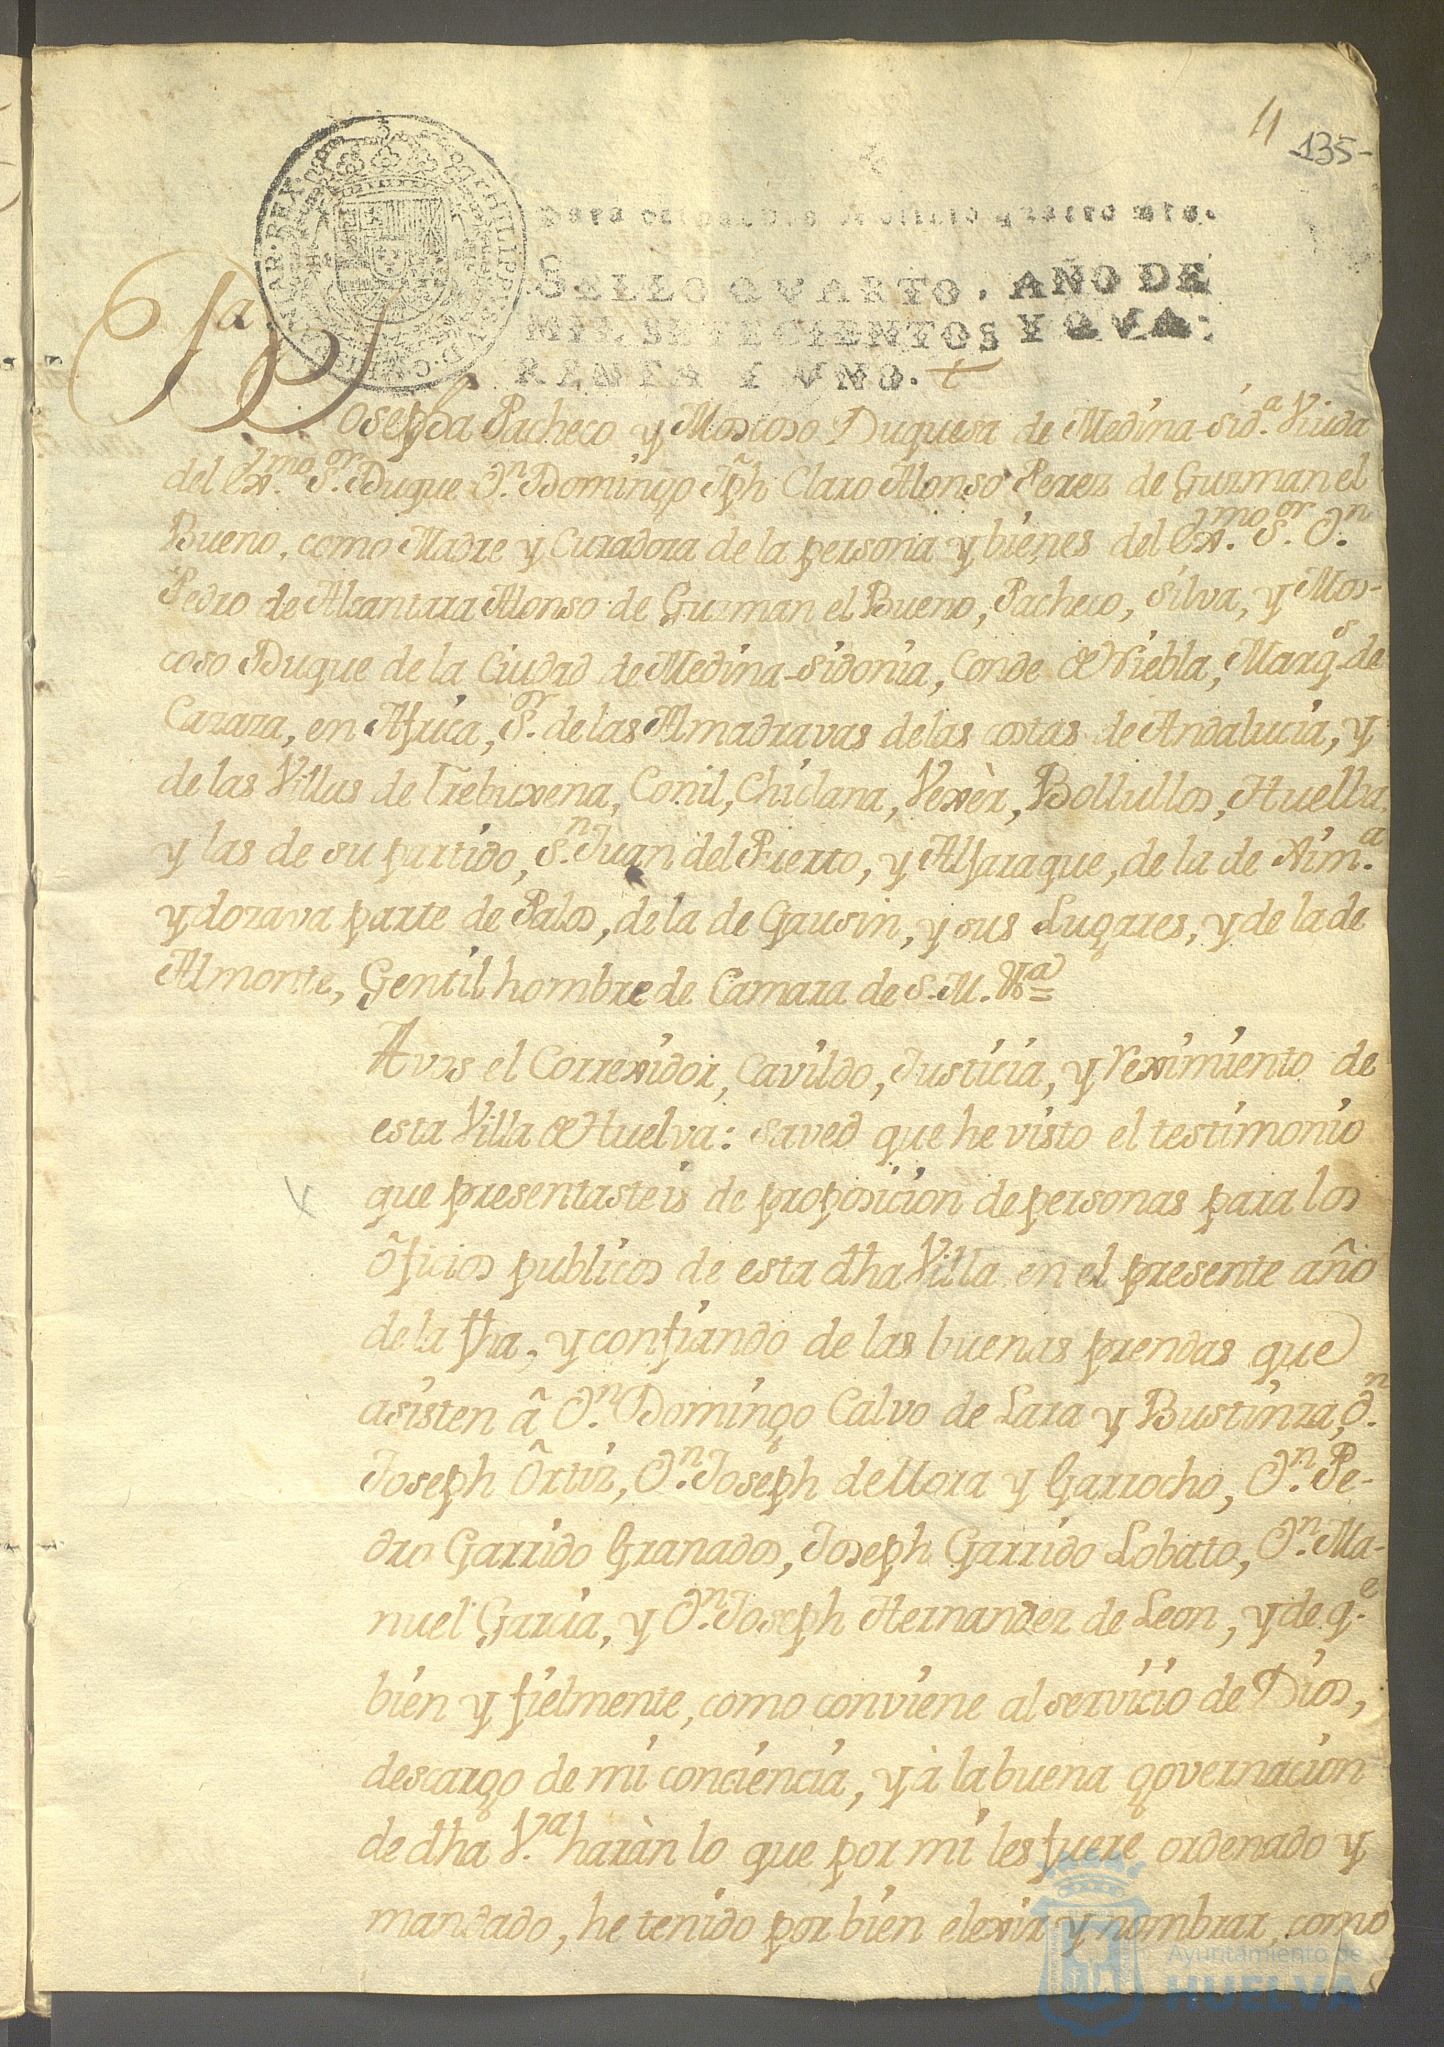 11
-135-
PHILIPPUS V. D. G. HISPANIAR. REX
Para despachos de oficio quatro mrs.
SELLO QVARTO, AÑO DE
MIL SETECIENTOS Y QVA-
RENTA Y VNO. +
D.ª
Josepha Pacheco y Moscoso Duquesa de Medina-Sid.ª Viuda
del Ex.mo S.or Duque D.n Domingo Jph Claro Alonso Perez de Guzman el
Bueno, como Madre y Curadora de la persona y bienes del Ex.mo S.or D.n
Pedro de Alcantara Alonso de Guzman el Bueno, Pacheco, Silva, y Mos-
coso Duque de la Ciudad de Medina-Sidonia, Conde de Niebla, Marq.s de
Cazaza, en Africa, S.or de las Almadravas de las costas de Andalucia, y
de las Villas de Trebuxena, Conil, Chiclana, Vexèr, Bollullos, Huelba,
y las de su partido, S.n Juan del Puerto, y Alfaraque, de la de Xim.ª
y dozava parte de Palos, de la de Gausin, y sus Lugares, y de la de
Almonte, Gentil hombre de Camara de S. M. &ª
A vos el Correxidor, Cavildo, Justicia, y reximiento de
esta Villa de Huelva: saved que he visto el testimonio
que presentasteis de proposicion de personas para los
oficios publicos de esta dha Villa en el presente año
de la fha, y confiando de las buenas prendas que
asisten â D.n Domingo Calvo de Lara y Bustinza, D.n
Joseph Ôrtiz, D.n Joseph de Mora y Garrocho, D.n Pe-
dro Garrido Granados, Joseph Garrido Lobato, D.n Ma-
nuel Garcia, y D.n Joseph Hernandez de Leon, y de q.e
bien y fielmente, como conviene al servicio de Dios,
descargo de mi conciencia, y à la buena governacion
de dha V.ª haràn lo que por mi les fuere ordenado y
mandado, he tenido por bien elexir y nombrar, como
Ayuntamiento de
HUELVA